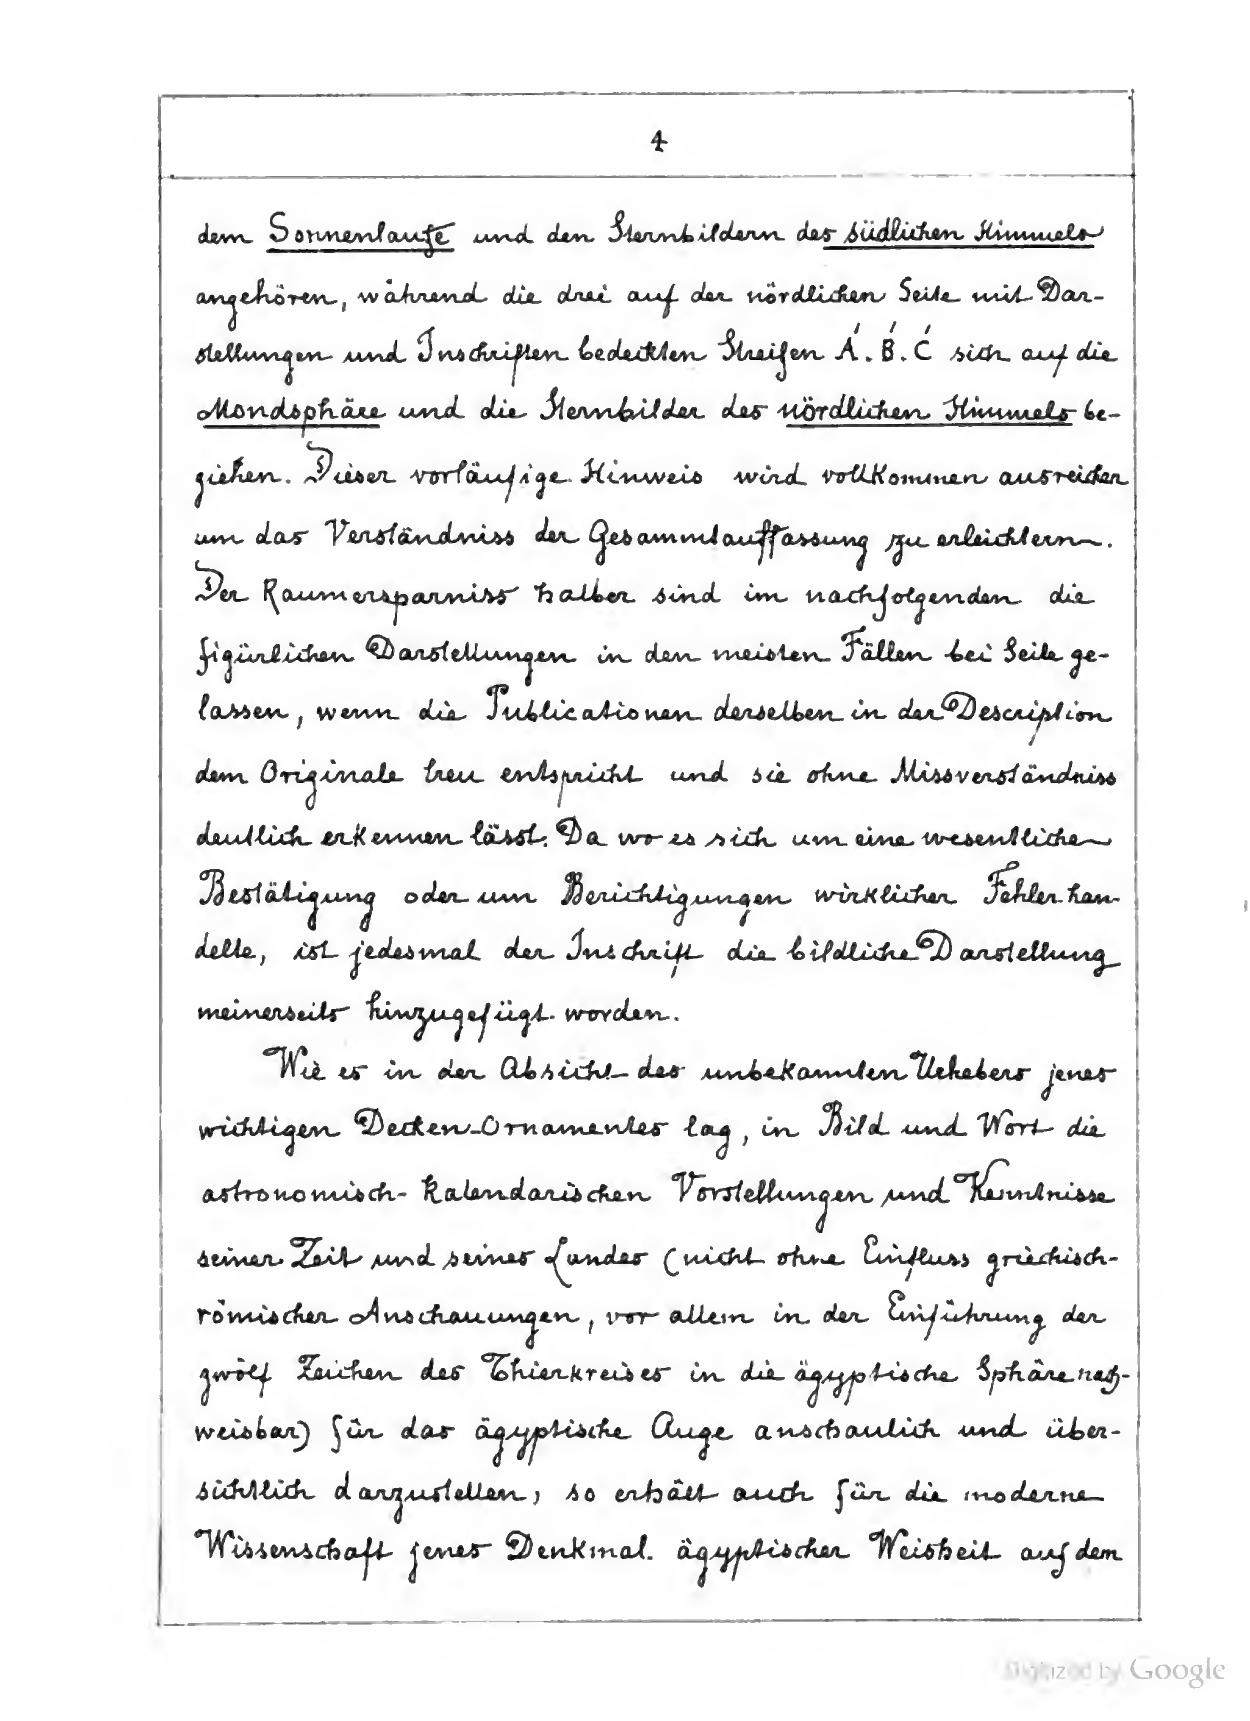 4
dem Sonnenlaufe und den Sternbildern des südlichen Himmels
angehören, während die drei auf der nördlichen Seite mit Dar-
stellungen und Inschriften bedeckten Streifen A'. B'. C' sich auf die
Mondsphäre und die Sternbilder des nördlichen Himmels be-
ziehen. Dieser vorläufige Hinweis wird vollkommen ausreichen
um das Verständniss der Gesammtauffassung zu erleichtern.
Der Raumersparniss halber sind im nachfolgenden die
figürlichen Darstellungen in den meisten Fällen bei Seite ge-
lassen, wenn die Publicationen derselben in der Description
dem Originale treu entspricht und sie ohne Missverständniss
deutlich erkennen lässt. Da wo es sich um eine wesentliche
Bestätigung oder um Berichtigungen wirklicher Fehler han-
delte, ist jedesmal der Inschrift die bildliche Darstellung
meinerseits hinzugefügt worden.
Wie es in der Absicht des unbekannten Urhebers jenes
wichtigen Decken-Ornamentes lag, in Bild und Wort die
astronomisch-kalendarischen Vorstellungen und Kenntnisse
seiner Zeit und seines Landes (nicht ohne Einfluss griechisch-
römischer Anschauungen, vor allem in der Einführung der
zwölf Zeichen des Thierkreises in die ägyptische Sphäre nach-
weisbar) für das ägyptische Auge anschaulich und über-
sichtlich darzustellen, so erhält auch für die moderne
Wissenschaft jenes Denkmal ägyptischer Weisheit auf dem
Digitized by Google